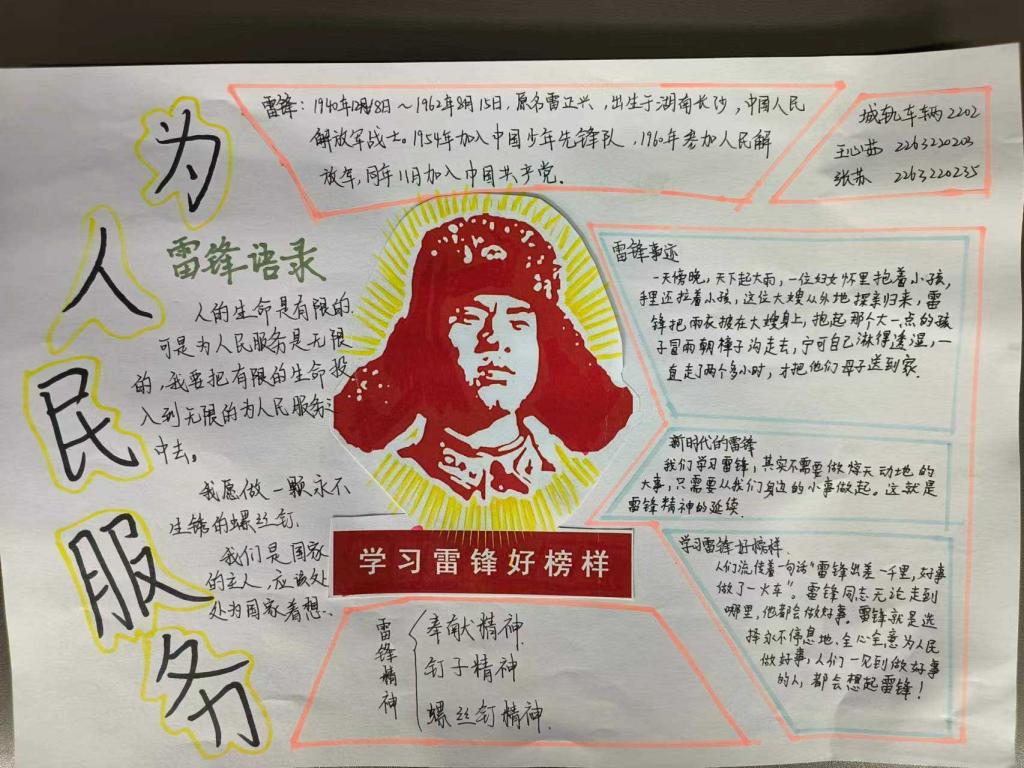 为人民服务
雷锋：1940年12月18日～1962年8月15日，原名雷正兴，出生于湖南长沙，中国人民
解放军战士。1954年加入中国少年先锋队，1960年参加人民解
放军，同年11月加入中国共产党.
城轨车辆2202
王心茹 2263220203
张苏 2263220235
雷锋语录
人的生命是有限的.
可是为人民服务是无限
的，我要把有限的生命投
入到无限的为人民服务之
中去。
我愿做一颗永不
生锈的螺丝钉.
我们是国家
的主人，应该处
处为国家着想..
学习雷锋好榜样
雷锋精神
奉献精神.
钉子精神
螺丝钉精神.
雷锋事迹
一天傍晚，天下起大雨，一位妇女怀里抱着小孩，
手里还拉着小孩，这位大嫂从外地探亲归来，雷
锋把雨衣披在大嫂身上，抱起那个大一点的孩
子冒雨朝樟子沟走去，宁可自己淋得透湿，一
直走了两个多小时，才把他们母子送到家.
新时代的雷锋
我们学习雷锋，其实不需要做惊天动地的
大事，只需要从我们身边的小事做起。这就是
雷锋精神的延续.
学习雷锋好榜样.
人们流传着一句话“雷锋出差一千里，好事
做了一火车”。雷锋同志无论走到
哪里，他都会做好事。雷锋就是选
择永不停息地，全心全意为人民
做好事，人们一见到做好事
的人，都会想起雷锋！